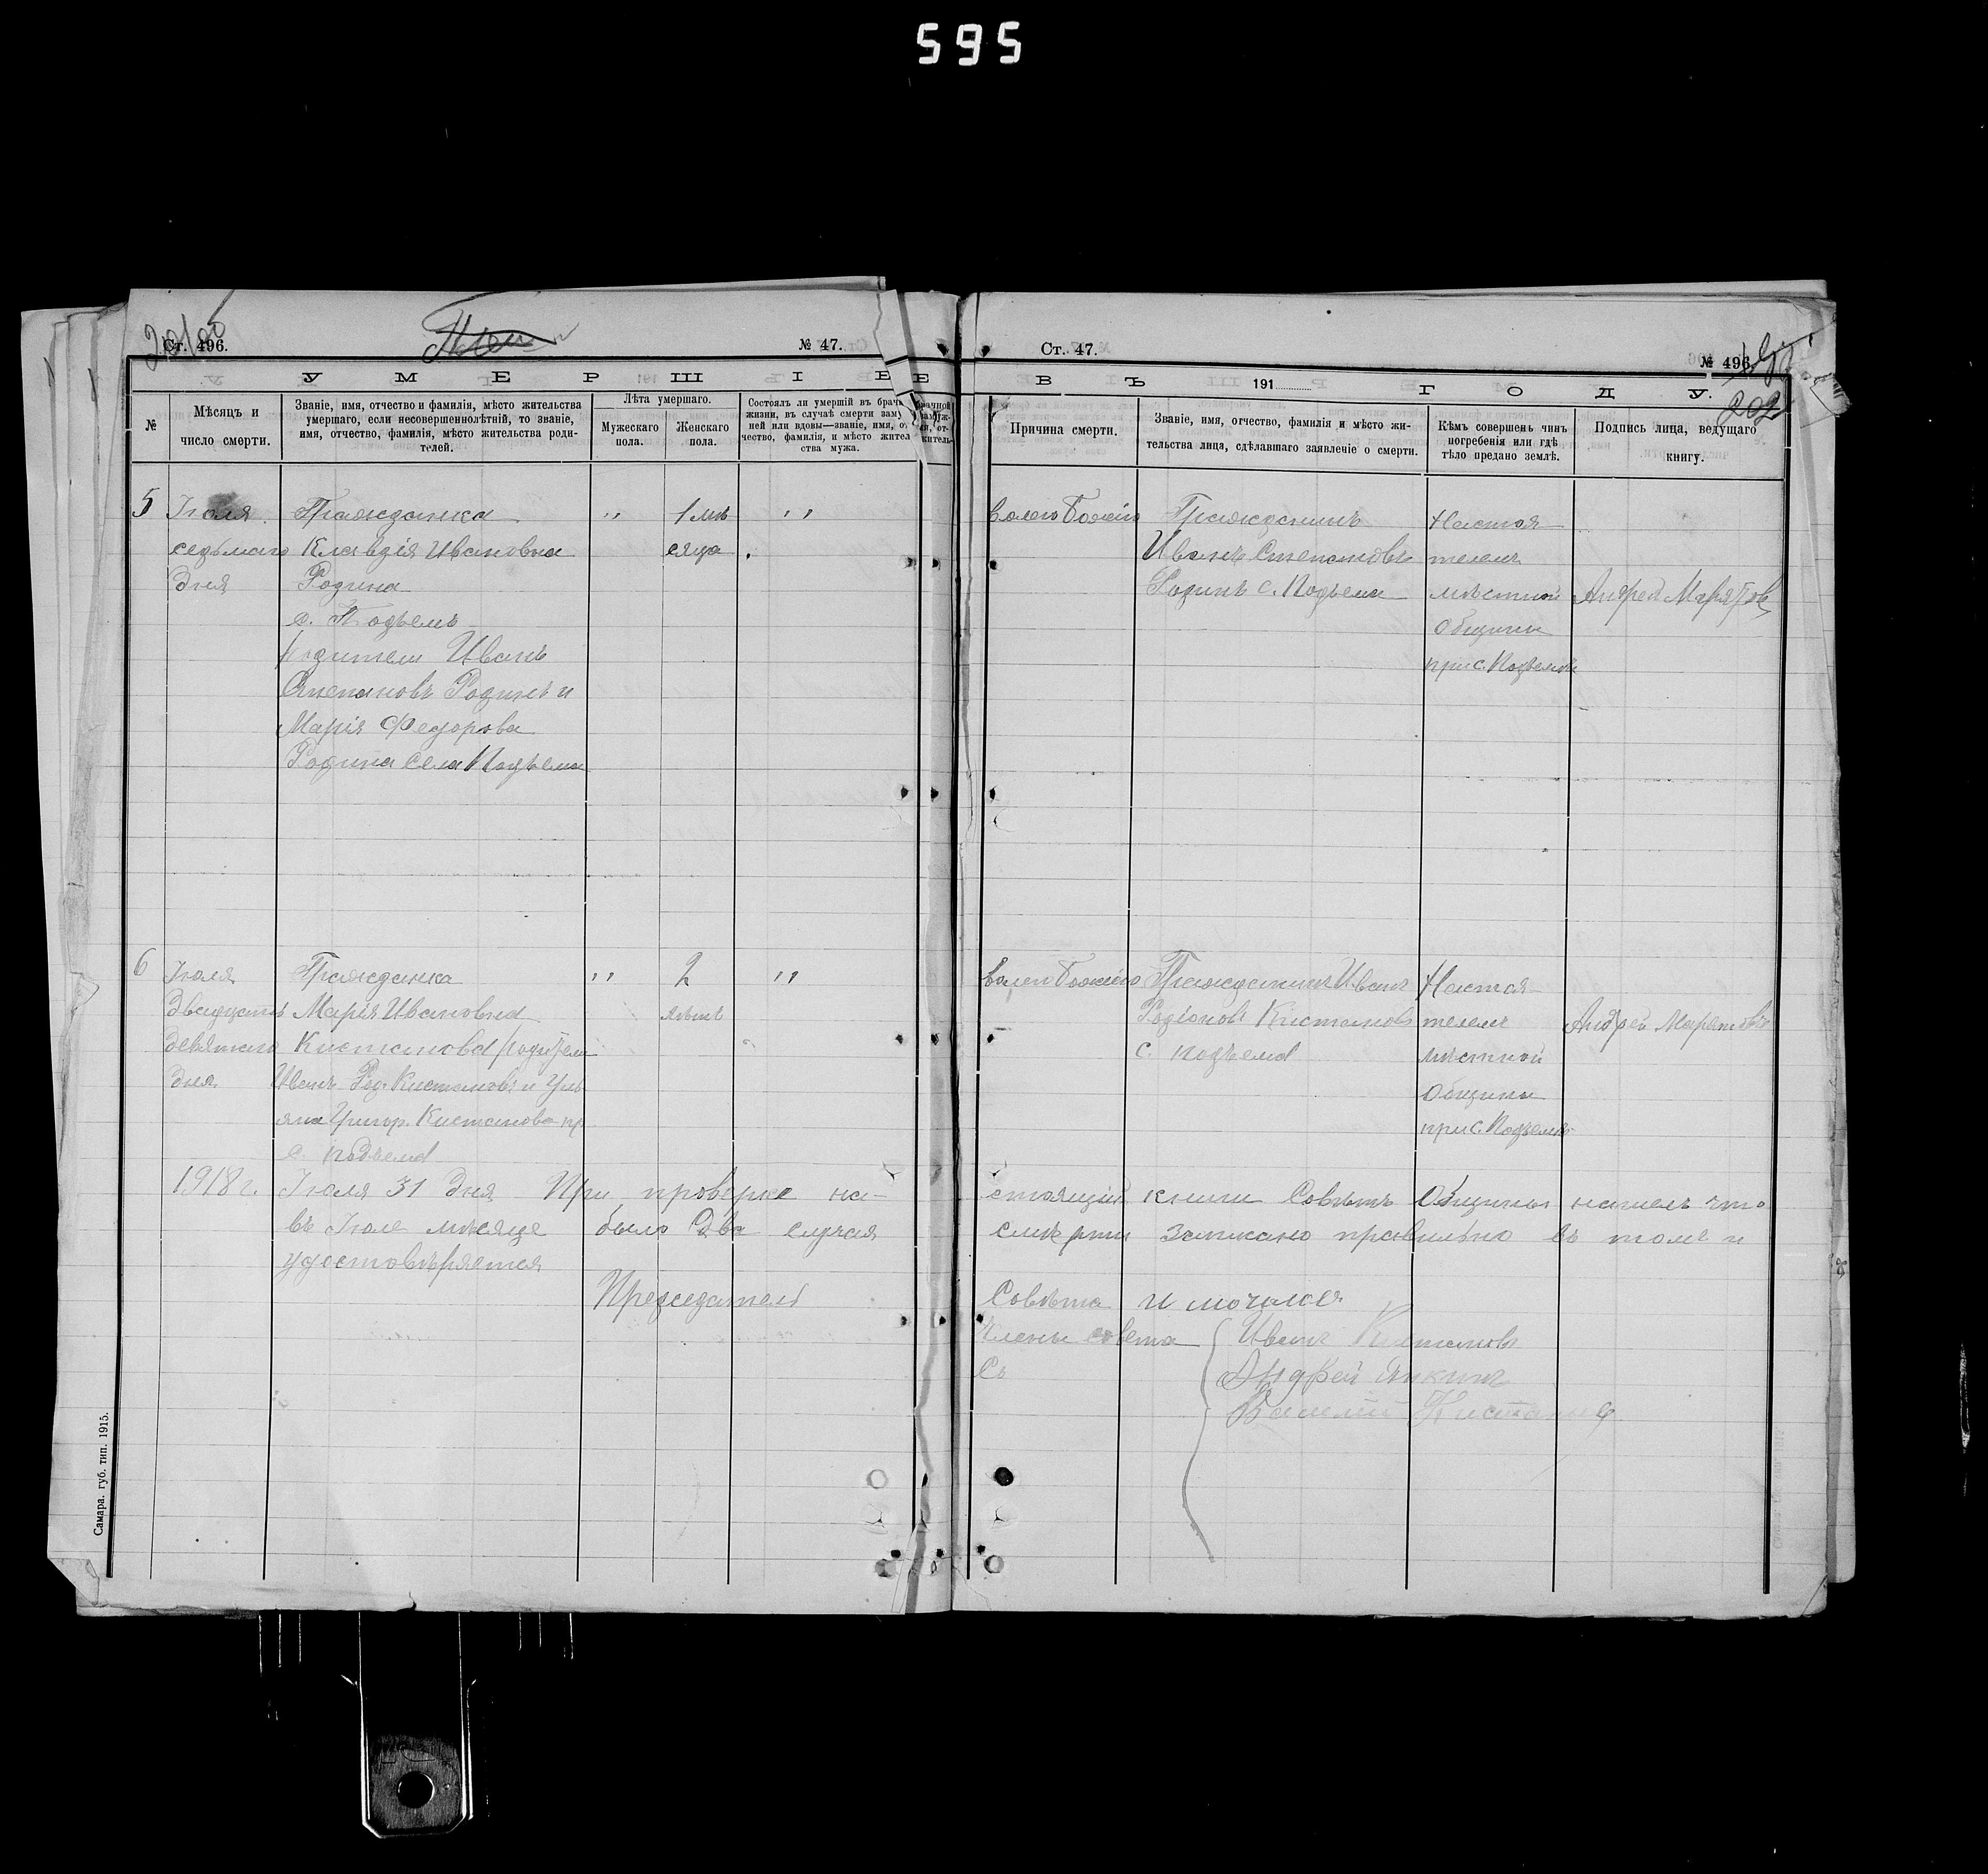 595
Ст. 496.
№ 47.
Ст. 47.
№ 496
202
УМЕРШІЕ
ВЪ 191 ГОДУ.
№
Мѣсяцъ и число смерти.
Званіе, имя, отчество и фамилія, мѣсто жительства
умершаго, если несовершеннолѣтній, то званіе,
имя, отчество, фамилія, мѣсто жительства роди-
телей.
Лѣта умершаго.
Мужескаго пола.
Женскаго пола.
Состоялъ ли умершій въ брач
жизни, въ случаѣ смерти заму
ней или вдовы—званіе, имя, о
чество, фамилія, и мѣсто жител
ства мужа.
Причина смерти.
Званіе, имя, отчество, фамилія и мѣсто жи-
тельства лица, сдѣлавшаго заявленіе о смерти.
Кѣмъ совершенъ чинъ
погребенія или гдѣ
тѣло предано землѣ.
Подпись лица, ведущаго
книгу.
5
Іюля
седьмаго
Дня
Гражданка
Клавдія Ивановна
Родина
с. Подъемъ
родители Иванъ
Степановъ Родинъ и
Марія Федорова
Родина села Подъема
"
1 мѣ
сяца
"
волею Божіею
Гражданинъ
Иванъ Степановъ
Родинъ с. Подъема
Настоя-
телемъ
мѣстной
Общины
при с. Подъемѣ
Андрей Марятов
6
Іюля
Двадцать
девятаго
Дня
Гражданка
Марія Ивановна
Кистанова родители
Иванъ Род. Кистановъ и Уль
яна Григор. Кистанова пр
с. Подъема
"
2
"
волею Божіею
Гражданинъ Иванъ
Родіоновъ Кистановъ
с. Подъема
Настоя-
телемъ
мѣстной
Общины
при с. Подъемѣ
Андрей Марятовъ
1918 г. Іюля 31 Дня При проверке на-
стоящей книги Совѣтъ Общины нашелъ что
въ Іюле мѣсяце было Два случая
смѣрти записано правильно въ томъ и
удостовѣряется
Председатель
Совѣта
Члены совета
Иванъ Кистановъ
Андрей Янкинъ
Василий Кистанов
Самара. губ. тип. 1915.